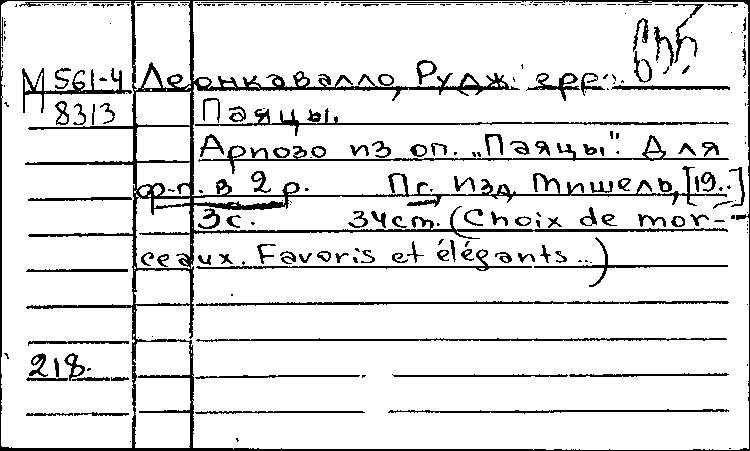 спб.
М 561-4 Леонкавалло, Руджерро.
8313 Паяцы.
Ариозо из оп. „Паяцы“. Для
ф-п. в 2 р. Пг., Изд. Мишель, [19..]
3с. 34см. (Choix de mor-
ceaux. Favoris et élégants...)
218.